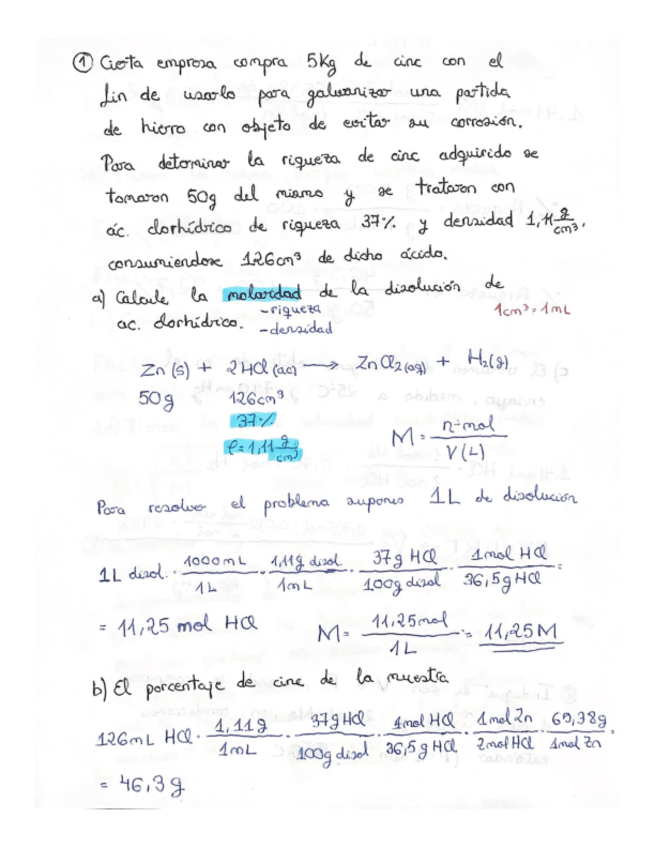 ① Cierta empresa compra 5Kg de cinc con el
fin de usarlo para galvanizar una partida
de hierro con objeto de evitar su corrosión.
Para determinar la riqueza de cinc adquirido se
tomaron 50g del mismo y se trataron con
ác. clorhídrico de riqueza 37% y densidad 1,11 g/cm³,
consumiendose 126cm³ de dicho ácido.
a) Calcule la molaridad de la disolución de
ac. clorhídrico. -riqueza 1cm³=1mL
-densidad
Zn (s) + 2HCl (ac) → ZnCl₂(aq) + H₂(g)
50g 126cm³
37%
ρ=1,11 g/cm³
M = n=mol / V(L)
Para resolver el problema supones 1L de disolución
1L disol. · 1000mL/1L · 1,11g disol./1mL · 37g HCl/100g disol · 1mol HCl/36,5g HCl =
= 11,25 mol HCl M= 11,25mol/1L = 11,25M
b) El porcentaje de cinc de la muestra
126mL HCl · 1,11g/1mL · 37g HCl/100g disol · 1mol HCl/36,5g HCl · 1mol Zn/2mol HCl · 65,38g/1mol Zn.
= 46,3g